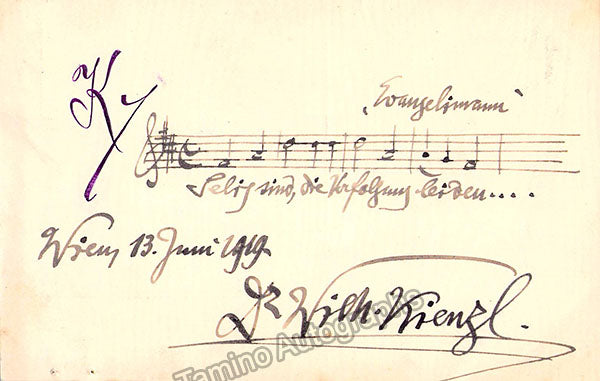 K
„Evangelimann“
Selig sind, die Verfolgung leiden....
Wien, 13. Juni 1919.
Dr Wilh. Kienzl.
Tamino Autographs